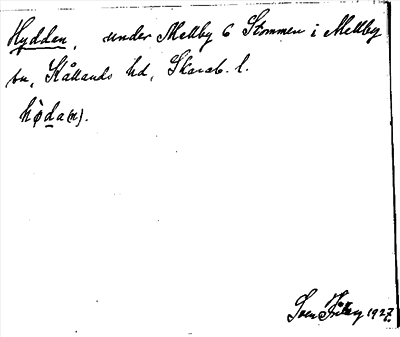 Hydden, under Mellby 6 Stommen i Mellby
sn, Kållands hd, Skarab. l.
hò̜da(n).
Sven 1927.